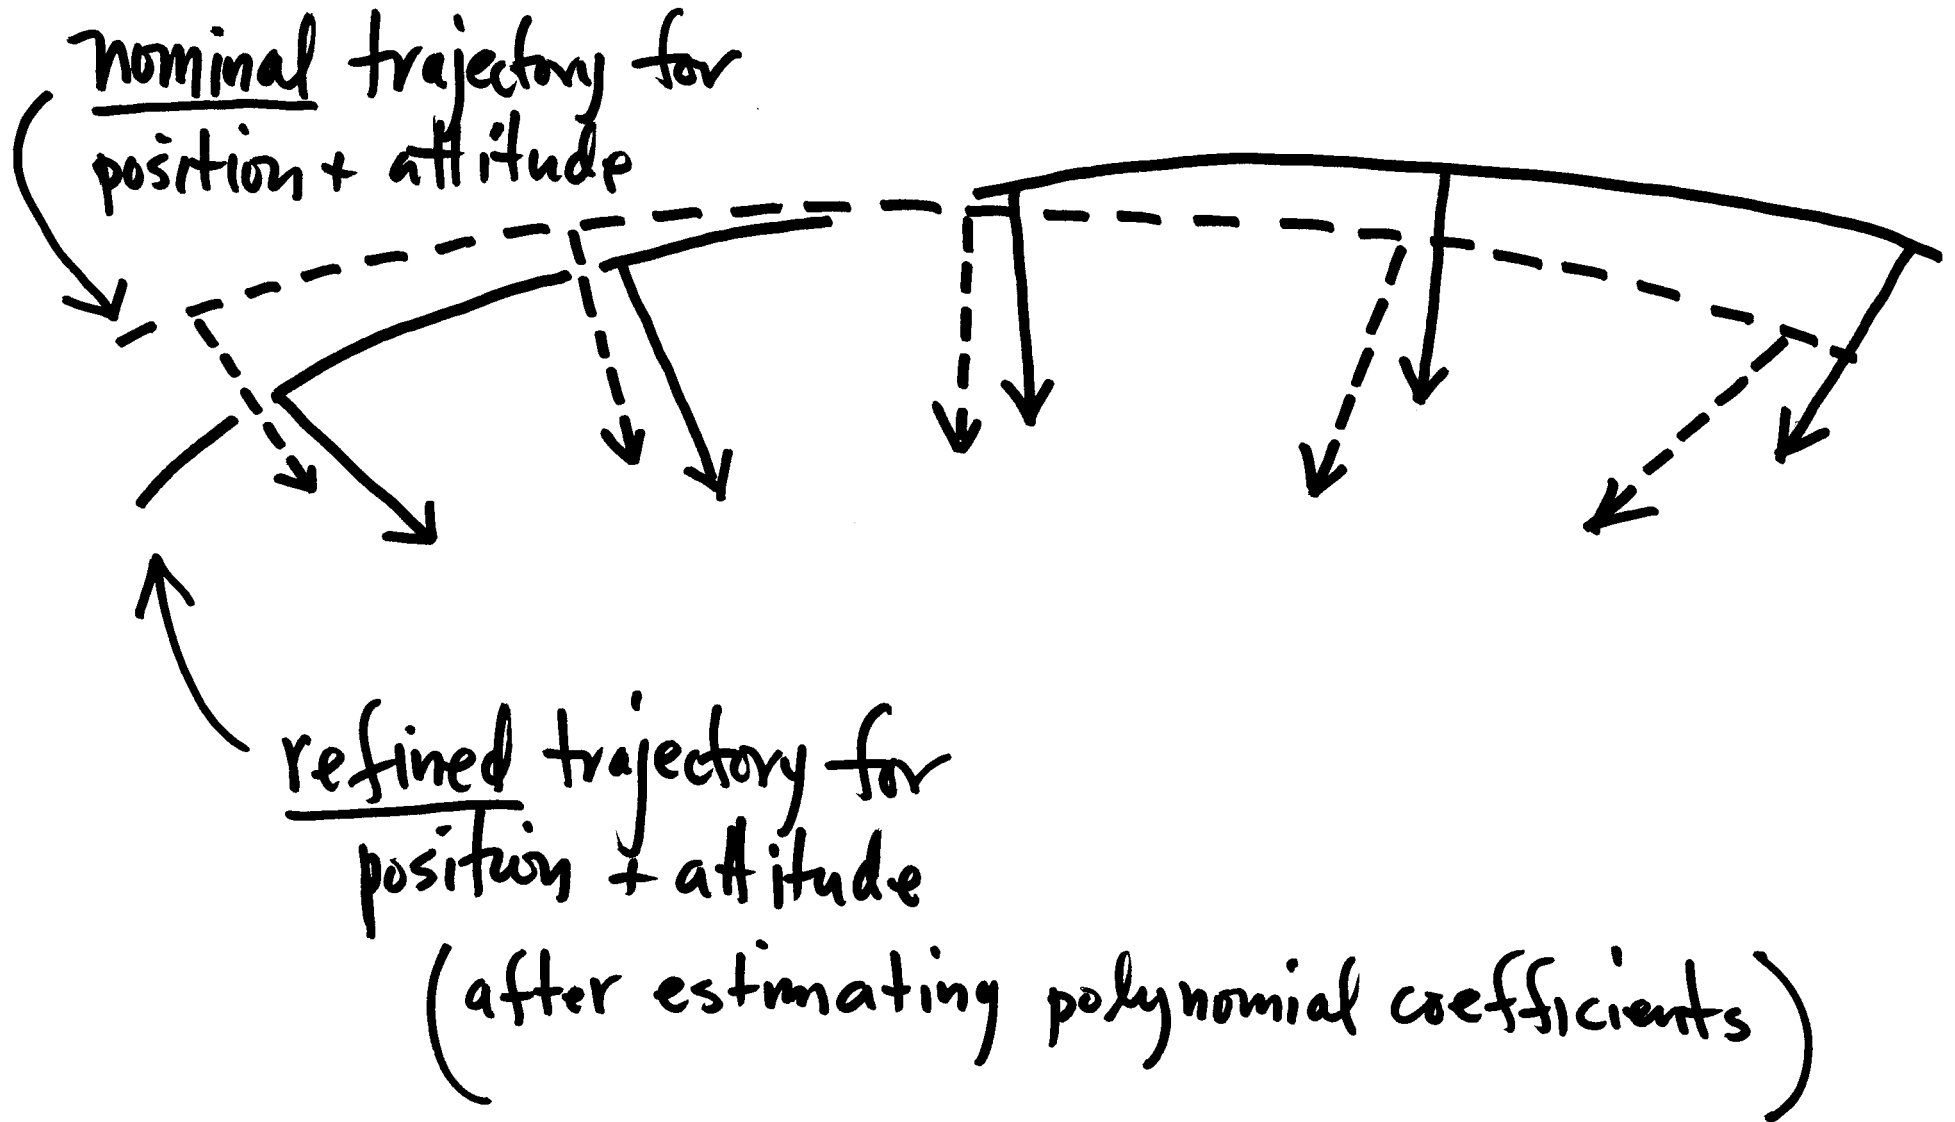 nominal trajectory for
position + attitude
refined trajectory for
position + attitude
(after estimating polynomial coefficients)